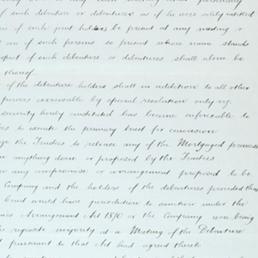 of such debenture or debentures as if he were solely entitled
one of such joint holders be present at any meeting
one of such persons so present whose name stands
respect of such debenture or debentures shall alone be
thereof
of the debenture holders shall in addition to all other
powers exercisable by special resolution only viz
security hereby constituted has become enforceable to
to the primary trust for conversion
the Trustees to release any of the Mortgaged premises
anything done or proposed by the Trustees
any compromise or arrangement proposed to be
Company and the holders of the debentures provided that
Court would have jurisdiction to sanction under the
Arrangement Act 1870 if the Company was being
requisite majority at a Meeting of the Debenture
pursuant to that Act had agreed thereto